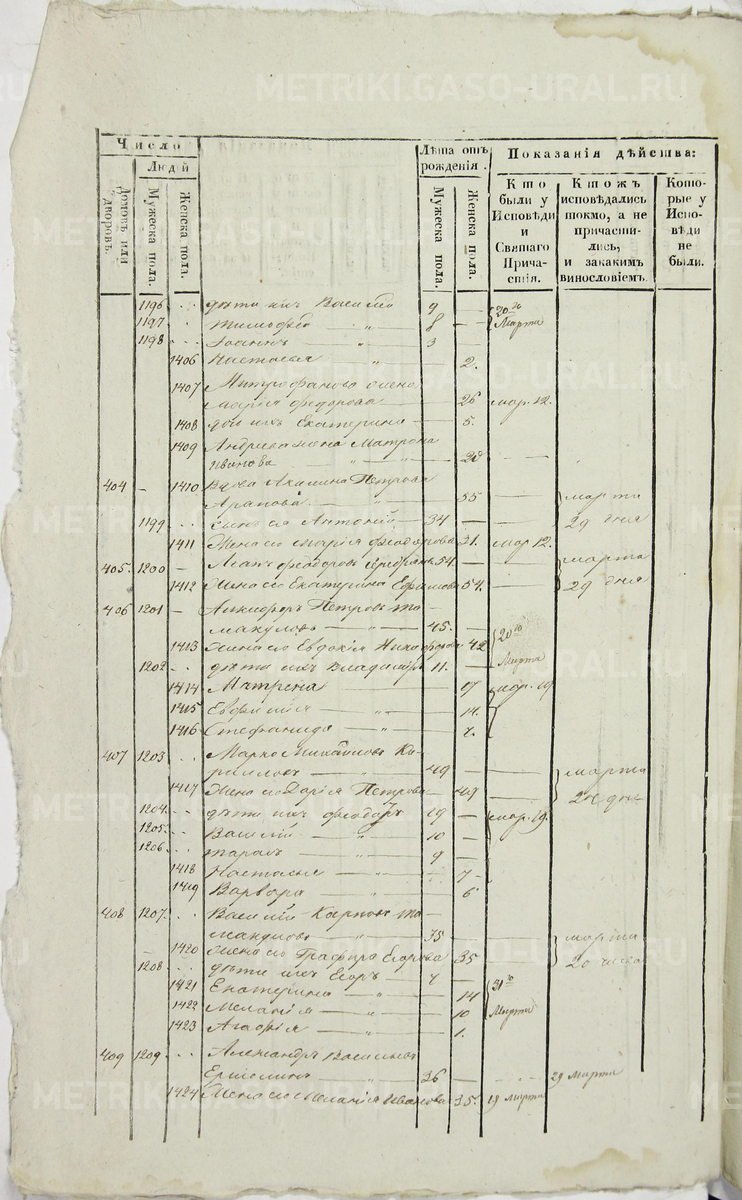 METRIKI.GASO-URAL.RU
Число
Людей
Домовъ или дворовъ.
Мужеска пола.
Женска пола.
Лѣта отъ рождения.
Мужеска пола.
Женска пола.
Показанія дѣйства:
Кто были у Исповѣди и Святаго Причастія.
Ктожъ исповѣдались токмо, а не причастились, и закакимъ винословіемъ.
Которые у Исповѣди не были.
1196 дѣти ихъ Василій 9 20го
1197 Тимофей " 8 Марта
1198 Іоаннъ " 3
1406 Настасья " 2.
1407 Митрофанова жена
Марія Федорова 26 мар. 12.
1408 дочь ихъ Екатерина 5.
1409 Андреева жена Матрона
Иванова 20
404 1410 Вдова Акилина Петрова
Арапова 55 марта
1199 Сынъ ея Антоній 34 29 дня
1411 Жена его Марія Феодорова 31. мар 12.
405. 1200 Феодоровъ 54. марта
1412 Жена его Екатерина Ефимова 54. 29 дня
406 1201 Никифоръ Петровъ
45.
1413 Жена его Евдокія Никифорова 42 20го
1202 дѣти ихъ Владиміръ 11. Марта
1414 Матрена 17 мар. 19
1415 Евфимія " 14.
1416 Стефанида "
407 1203 Марко Михайловъ Ки-
рилловъ 49 марта
1417 Жена его Дарія Петрова 49 дня
1204 дѣти ихъ Феодоръ 19 мар. 19.
1205. Василій " 10
1206. Тарасъ " 9
1418 Настасья " 7
1419 Варвара " 6
408 1207. Василій Карповъ
35 марта
1420 Жена его Глафира Егорова 35 20 числа
1208 дѣти ихъ Егоръ 4
1421 Екатерина " 14 31го
1422 Меланія " 10 Марта
1423 Агафія " 1.
409 1209 Александръ Васильевъ
Ермолинъ " 36 29 марта
1424 Жена его Меланія Иванова 35. 19 марта